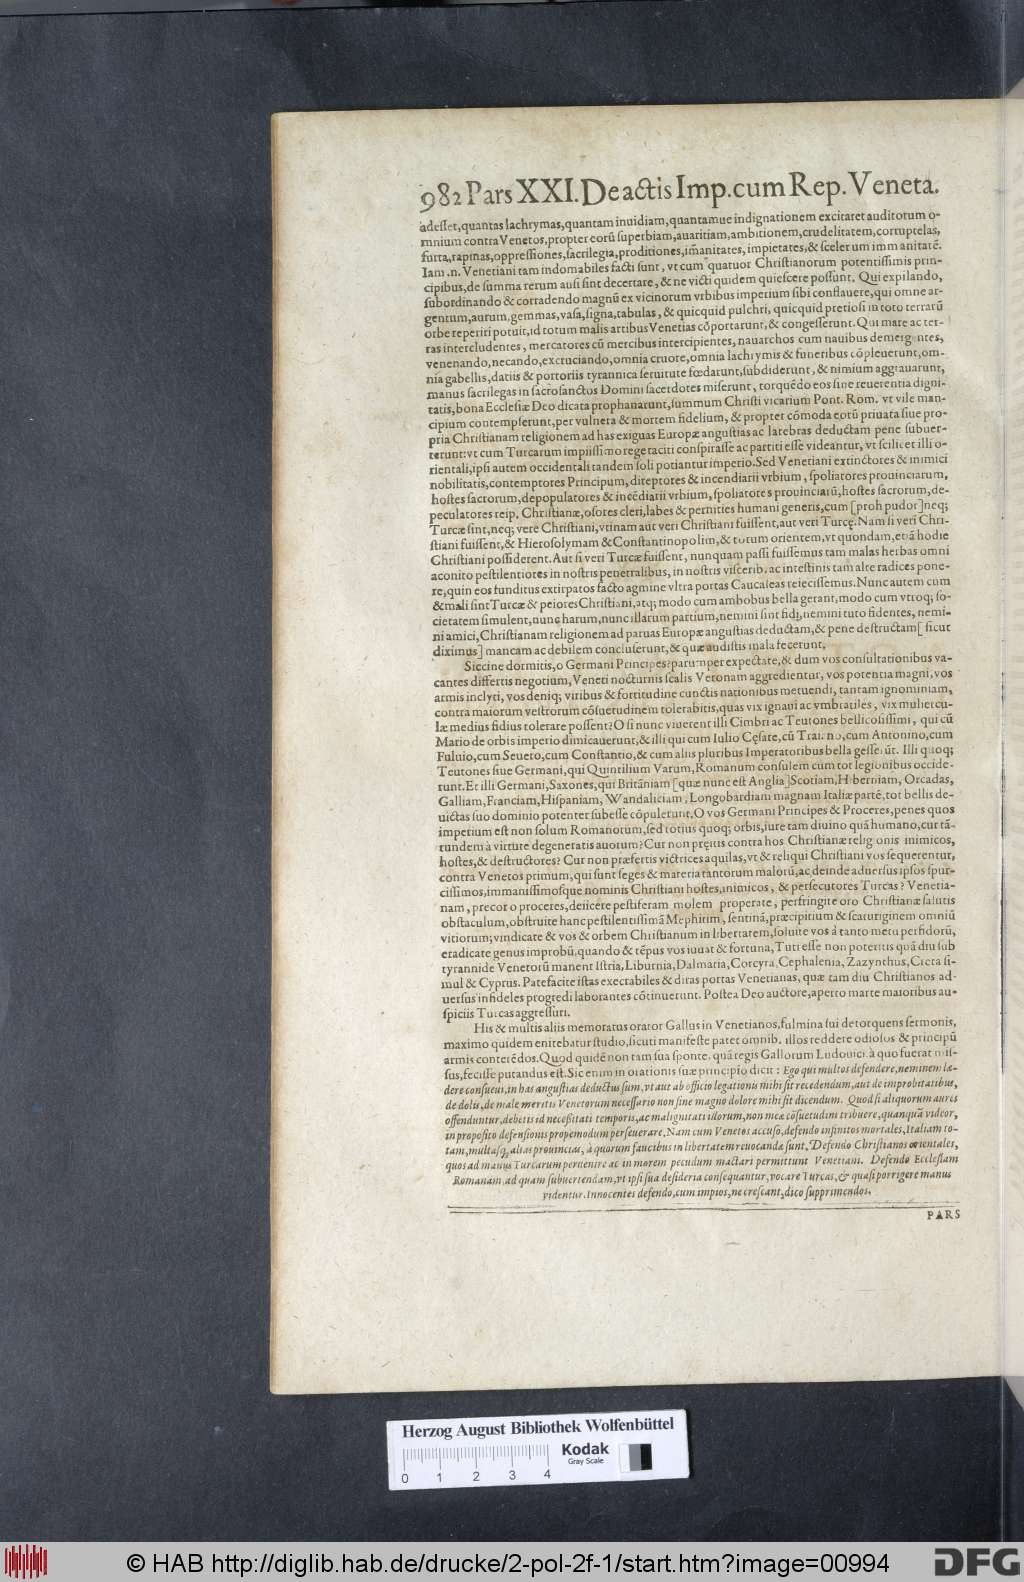 982 Pars XXI. De actis Imp. cum Rep. Veneta.
adeſſet, quantas lachrymas, quantam inuidiam, quantamue indignationem excitaret auditorum o-
mnium contra Venetos, propter eorū ſuperbiam, auaritiam, ambitionem, crudelitatem, corruptelas,
furta, rapinas, oppreſſiones, ſacrilegia, proditiones, im̄anitates, impietates, & ſcelerum immanitatē.
Iam .n. Venetiani tam indomabiles facti ſunt, vt cum quatuor Chriſtianorum potentiſſimis prin-
cipibus, de ſumma rerum auſi ſint decertare, & ne victi quidem quieſcere poſſunt. Qui expilando,
ſubordinando & corradendo magnū ex vicinorum vrbibus imperium ſibi conflauere, qui omne ar-
gentum, aurum, gemmas, vaſa, ſigna, tabulas, & quicquid pulchri, quicquid pretioſi in toto terrarū
orbe reperiri potuit, id totum malis artibus Venetias cōportarunt, & congeſſerunt. Qui mare ac ter-
ras intercludentes, mercatores cū mercibus intercipientes, nauarchos cum nauibus demergentes,
venenando, necando, excruciando, omnia cruore, omnia lachrymis & funeribus cōpleuerunt, om-
nia gabellis, datiis & portoriis tyrannica ſeruitute fœdarunt, ſubdiderunt, & nimium aggrauarunt,
manus ſacrilegas in ſacroſanctos Domini ſacerdotes miſerunt, torquēdo eos ſine reuerentia digni-
tatis, bona Eccleſiæ Deo dicata prophanarunt, ſummum Chriſti vicarium Pont. Rom. vt vile man-
cipium contempſerunt, per vulnera & mortem fidelium, & propter cōmoda eorū priuata ſiue pro-
pria Chriſtianam religionem ad has exiguas Europæ anguſtias ac latebras deductam pene ſubuer-
terunt: vt cum Turcarum impiiſſimo rege taciti conſpiraſſe ac partiti eſſe videantur, vt ſcilicet illi o-
rientali, ipſi autem occidentali tandem ſoli potiantur imperio. Sed Venetiani extinctores & inimici
nobilitatis, contemptores Principum, direptores & incendiarii vrbium, ſpoliatores prouinciarum,
hoſtes ſacrorum, depopulatores & incēdiarii vrbium, ſpoliatores prouinciarū, hoſtes ſacrorum, de-
peculatores reip. Chriſtianæ, oſores cleri, labes & pernities humani generis, cum [proh pudor] neq;
Turcæ ſint, neq; vere Chriſtiani, vtinam aut veri Chriſtiani fuiſſent, aut veri Turcę. Nam ſi veri Chri-
ſtiani fuiſſent, & Hieroſolymam & Conſtantinopolim, & totum orientem, vt quondam, etiā hodie
Chriſtiani poſſiderent. Aut ſi veri Turcæ fuiſſent, nunquam paſſi fuiſſemus tam malas herbas omni
aconito peſtilentiores in noſtris penetralibus, in noſtris viſcerib. ac inteſtinis tam alte radices pone-
re, quin eos funditus extirpatos facto agmine vltra portas Caucaſeas reieciſſemus. Nunc autem cum
& mali ſint Turcæ & peiores Chriſtiani, atq; modo cum ambobus bella gerant, modo cum vtroq; ſo-
cietatem ſimulent, nunc harum, nunc illarum partium, nemini ſint fidi, nemini tuto fidentes, nemi-
ni amici, Chriſtianam religionem ad paruas Europæ anguſtias deductam, & pene deſtructam [ſicut
diximus] mancam ac debilem concluſerunt, & quæ audiſtis mala fecerunt.
Siccine dormitis, o Germani Principes? parumper expectate, & dum vos conſultationibus va-
cantes differtis negotium, Veneti nocturnis ſcalis Veronam aggredientur, vos potentia magni, vos
armis inclyti, vos deniq; viribus & fortitudine cunctis nationibus metuendi, tantam ignominiam,
contra maiorum veſtrorum cōſuetudinem tolerabitis, quas vix ignaui ac vmbratiles, vix muliercu-
læ medius fidius tolerare poſſent? O ſi nunc viuerent illi Cimbri ac Teutones bellicoſiſſimi, qui cū
Mario de orbis imperio dimicauerunt, & illi qui cum Iulio Cęſare, cū Traiano, cum Antonino, cum
Fuluio, cum Seuero, cum Conſtantio, & cum aliis pluribus Imperatoribus bella geſſerūt. Illi quoq;
Teutones ſiue Germani, qui Quintilium Varum, Romanum conſulem cum tot legionibus occide-
runt. Et illi Germani, Saxones, qui Britāniam [quæ nunc eſt Anglia] Scotiam, Hiberniam, Orcadas,
Galliam, Franciam, Hiſpaniam, Wandaliciam, Longobardiam magnam Italiæ partē, tot bellis de-
uictas ſuo dominio potenter ſubeſſe cōpulerunt. O vos Germani Principes & Proceres, penes quos
imperium eſt non ſolum Romanorum, ſed totius quoq; orbis, iure tam diuino quā humano, cur tā-
tundem à virtute degeneratis auorum? Cur non pręitis contra hos Chriſtianæ religionis inimicos,
hoſtes, & deſtructores? Cur non præfertis victrices aquilas, vt & reliqui Chriſtiani vos ſequerentur,
contra Venetos primum, qui ſunt ſeges & materia tantorum malorū, ac deinde aduerſus ipſos ſpur-
ciſſimos, immaniſſimoſque nominis Chriſtiani hoſtes, inimicos, & perſecutores Turcas? Venetia-
nam, precor o proceres, deiicere peſtiferam molem properate, perfringite oro Chriſtianæ ſalutis
obſtaculum, obſtruite hanc peſtilentiſſimā Mephitim, ſentinā, præcipitium & ſcaturiginem omniū
vitiorum; vindicate & vos & orbem Chriſtianum in libertatem, ſoluite vos à tanto metu perfidorū,
eradicate genus improbū, quando & tēpus vos iuuat & fortuna, Tuti eſſe non poteritis quā diu ſub
tyrannide Venetorū manent Iſtria, Liburnia, Dalmatia, Corcyra, Cephalenia, Zazynthus, Creta ſi-
mul & Cyprus. Patefacite iſtas execrabiles & diras portas Venetianas, quæ tam diu Chriſtianos ad-
uerſus infideles progredi laborantes cōtinuerunt. Poſtea Deo auctore, aperto marte maioribus au-
ſpiciis Turcas aggreſſuri.
His & multis aliis memoratus orator Gallus in Venetianos, fulmina ſui detorquens ſermonis,
maximo quidem enitebatur ſtudio, ſicuti manifeſte patet omnib. illos reddere odioſos & principū
armis conterēdos. Quod quidē non tam ſua ſponte, quā regis Gallorum Ludouici à quo fuerat miſ-
ſus, feciſſe putandus eſt. Sic enim in orationis ſuæ principio dicit: Ego qui multos defendere, neminem læ-
dere conſueui, in has anguſtias deductus ſum, vt aut ab officio legationis mihi ſit recedendum, aut de improbitatibus,
de dolis, de male meritis Venetorum neceſſario non ſine magno dolore mihi ſit dicendum. Quod ſi aliquorum aures
offenduntur, debetis id neceſſitati temporis, ac malignitati illorum, non meæ cōſuetudini tribuere, quanquā videor,
in propoſito defenſionis propemodum perſeuerare, Nam cum Venetos accuſo, defendo infinitos mortales, Italiam to-
tam, multaſq, alias prouincias, à quorum faucibus in libertatem reuocandæ ſunt, Defendo Chriſtianos orientales,
quos ad manus Turcarum peruenire ac in morem pecudum mactari permittunt Venetiani. Defendo Eccleſiam
Romanam, ad quam ſubuertendam, vt ipſi ſua deſideria conſequantur, vocare Turcas, & quaſi porrigere manus
videntur. Innocentes defendo, cum impios, ne creſcant, dico ſupprimendos.
PARS
Herzog August Bibliothek Wolfenbüttel
Kodak
Gray Scale
0 1 2 3 4
© HAB http://diglib.hab.de/drucke/2-pol-2f-1/start.htm?image=00994
DFG